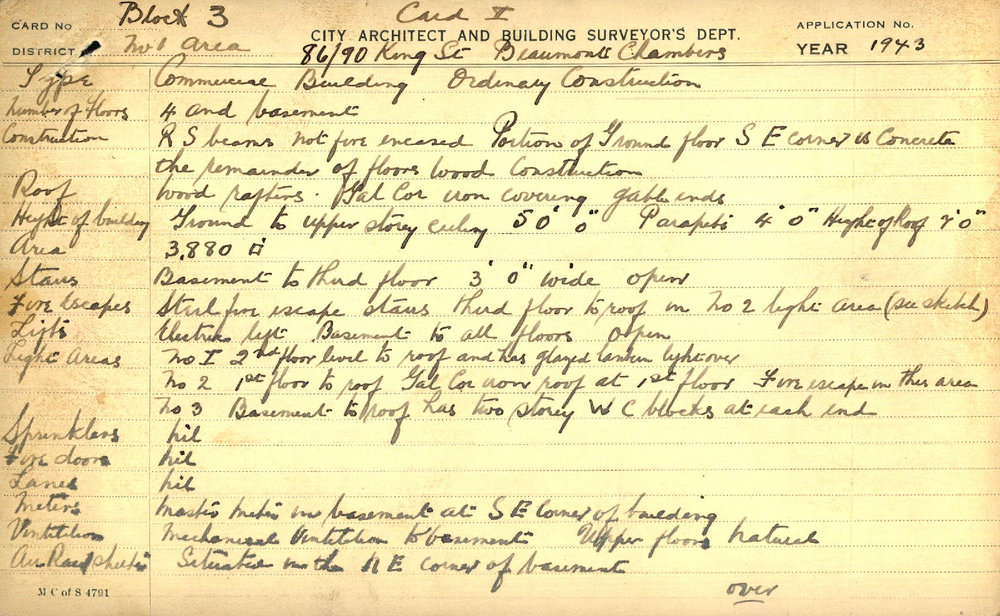 CARD No Block 3 Card I APPLICATION No.
CITY ARCHITECT AND BUILDING SURVEYOR'S DEPT.
DISTRICT No 1 Area 86/90 King St Beaumont Chambers YEAR 1943
Type Commercial Building Ordinary Construction
Number of floors 4 and basement
Construction R S beams not fire encased Portion of Ground floor S E corner is Concrete
the remainder of floors wood Construction
Roof Wood rafters. Gal Cor iron covering gable ends
Height of building Ground to upper storey ceiling 50' 0" Parapets 4' 0" Height of Roof 0"
Area 3.880 □'
Stairs Basement to third floor 3' 0" wide open
Fire Escapes Steel fire escape stairs third floor to roof in No 2 light area (see sketch)
Lifts Electric lift Basement to all floors Open
Light Areas No I 2nd floor level to roof and has glazed lantern light over
No 2 1st floor to roof Gal Cor iron roof at 1st floor Fire escape in this area
No 3 Basement to roof has two storey W C blocks at each end
Sprinklers nil
Fire doors nil
Lanes nil
Meters Master Meter in basement at S E Corner of building
Ventilition Mechanical Ventilition to basement Upper floors Natural
Air Raid shelter Situated in the N E corner of basement
M C of S 4791 over